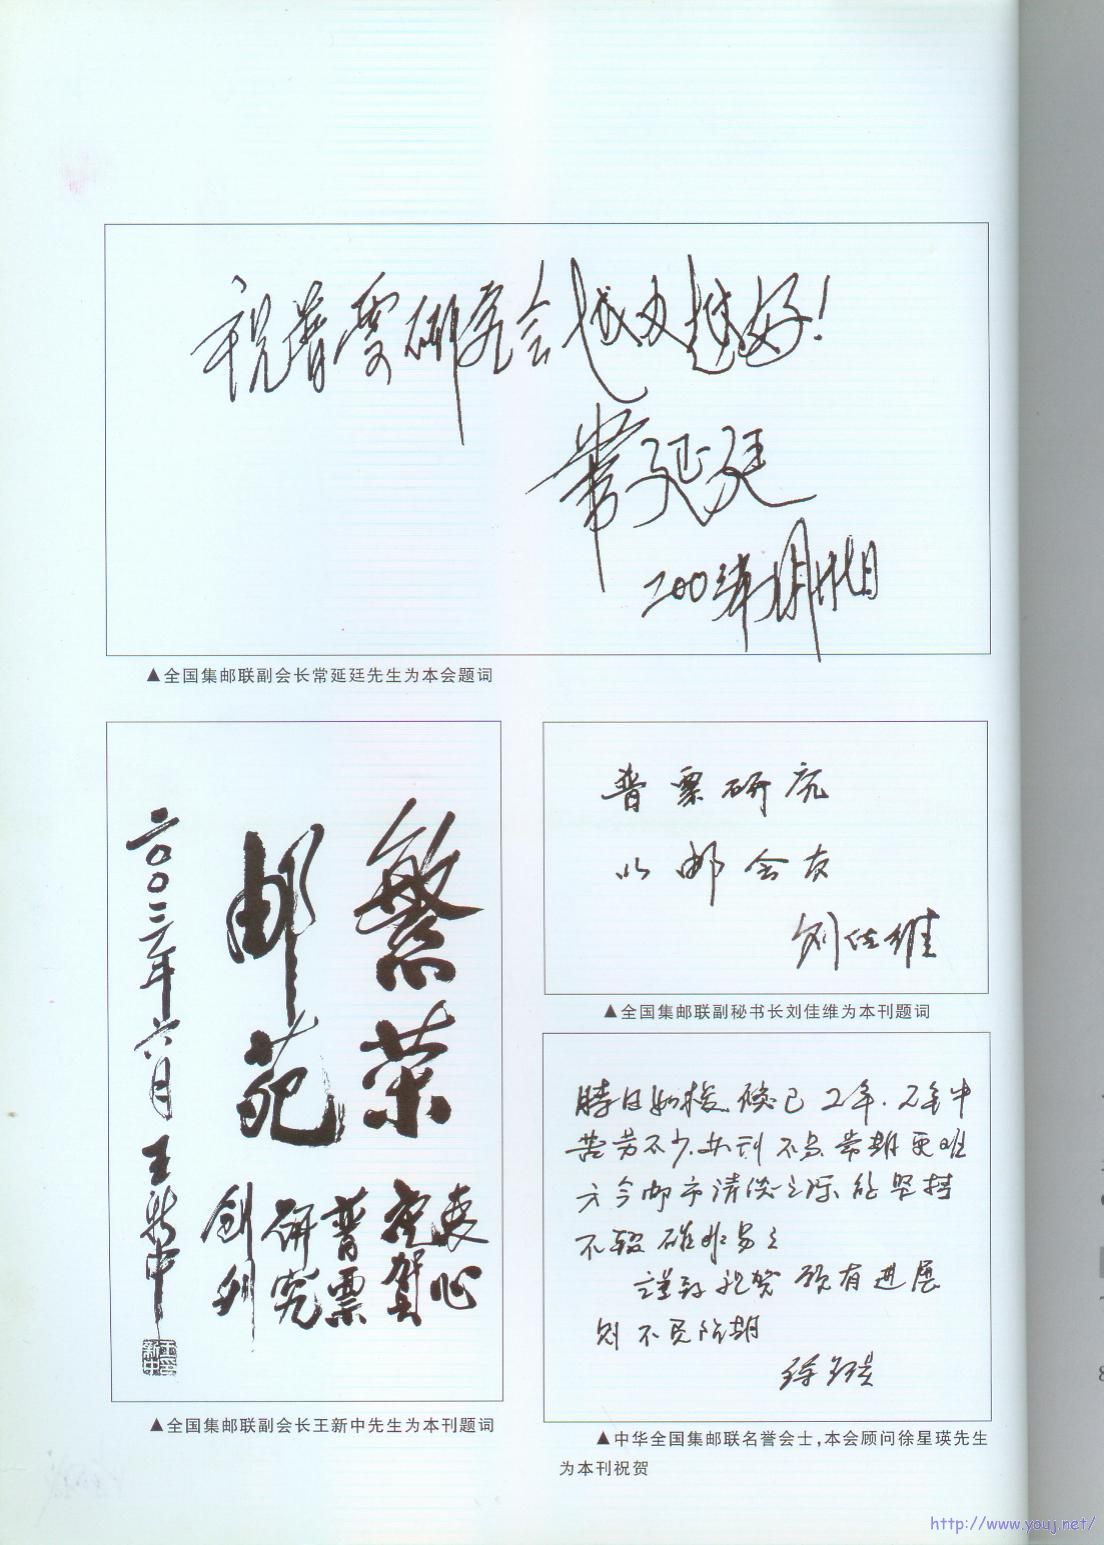 祝普票研究会越办越好!
常延廷
▲全国集邮联副会长常延廷先生为本会题词
繁荣
邮苑
衷心
祝贺
普票
研究
创刊
二〇〇三年六月 王新中
▲全国集邮联副会长王新中先生为本刊题词
普票研究
以邮会友
刘佳维
▲全国集邮联副秘书长刘佳维为本刊题词
时日如梭,倏已2年.2年中
苦劳不少,共刊不易,常期更难
方今邮市清淡之际,能坚持
不辍,确非易之
谨致祝贺 硕有进展
▲中华全国集邮联名誉会士,本会顾问徐星瑛先生
为本刊祝贺
http://www.youj.net/